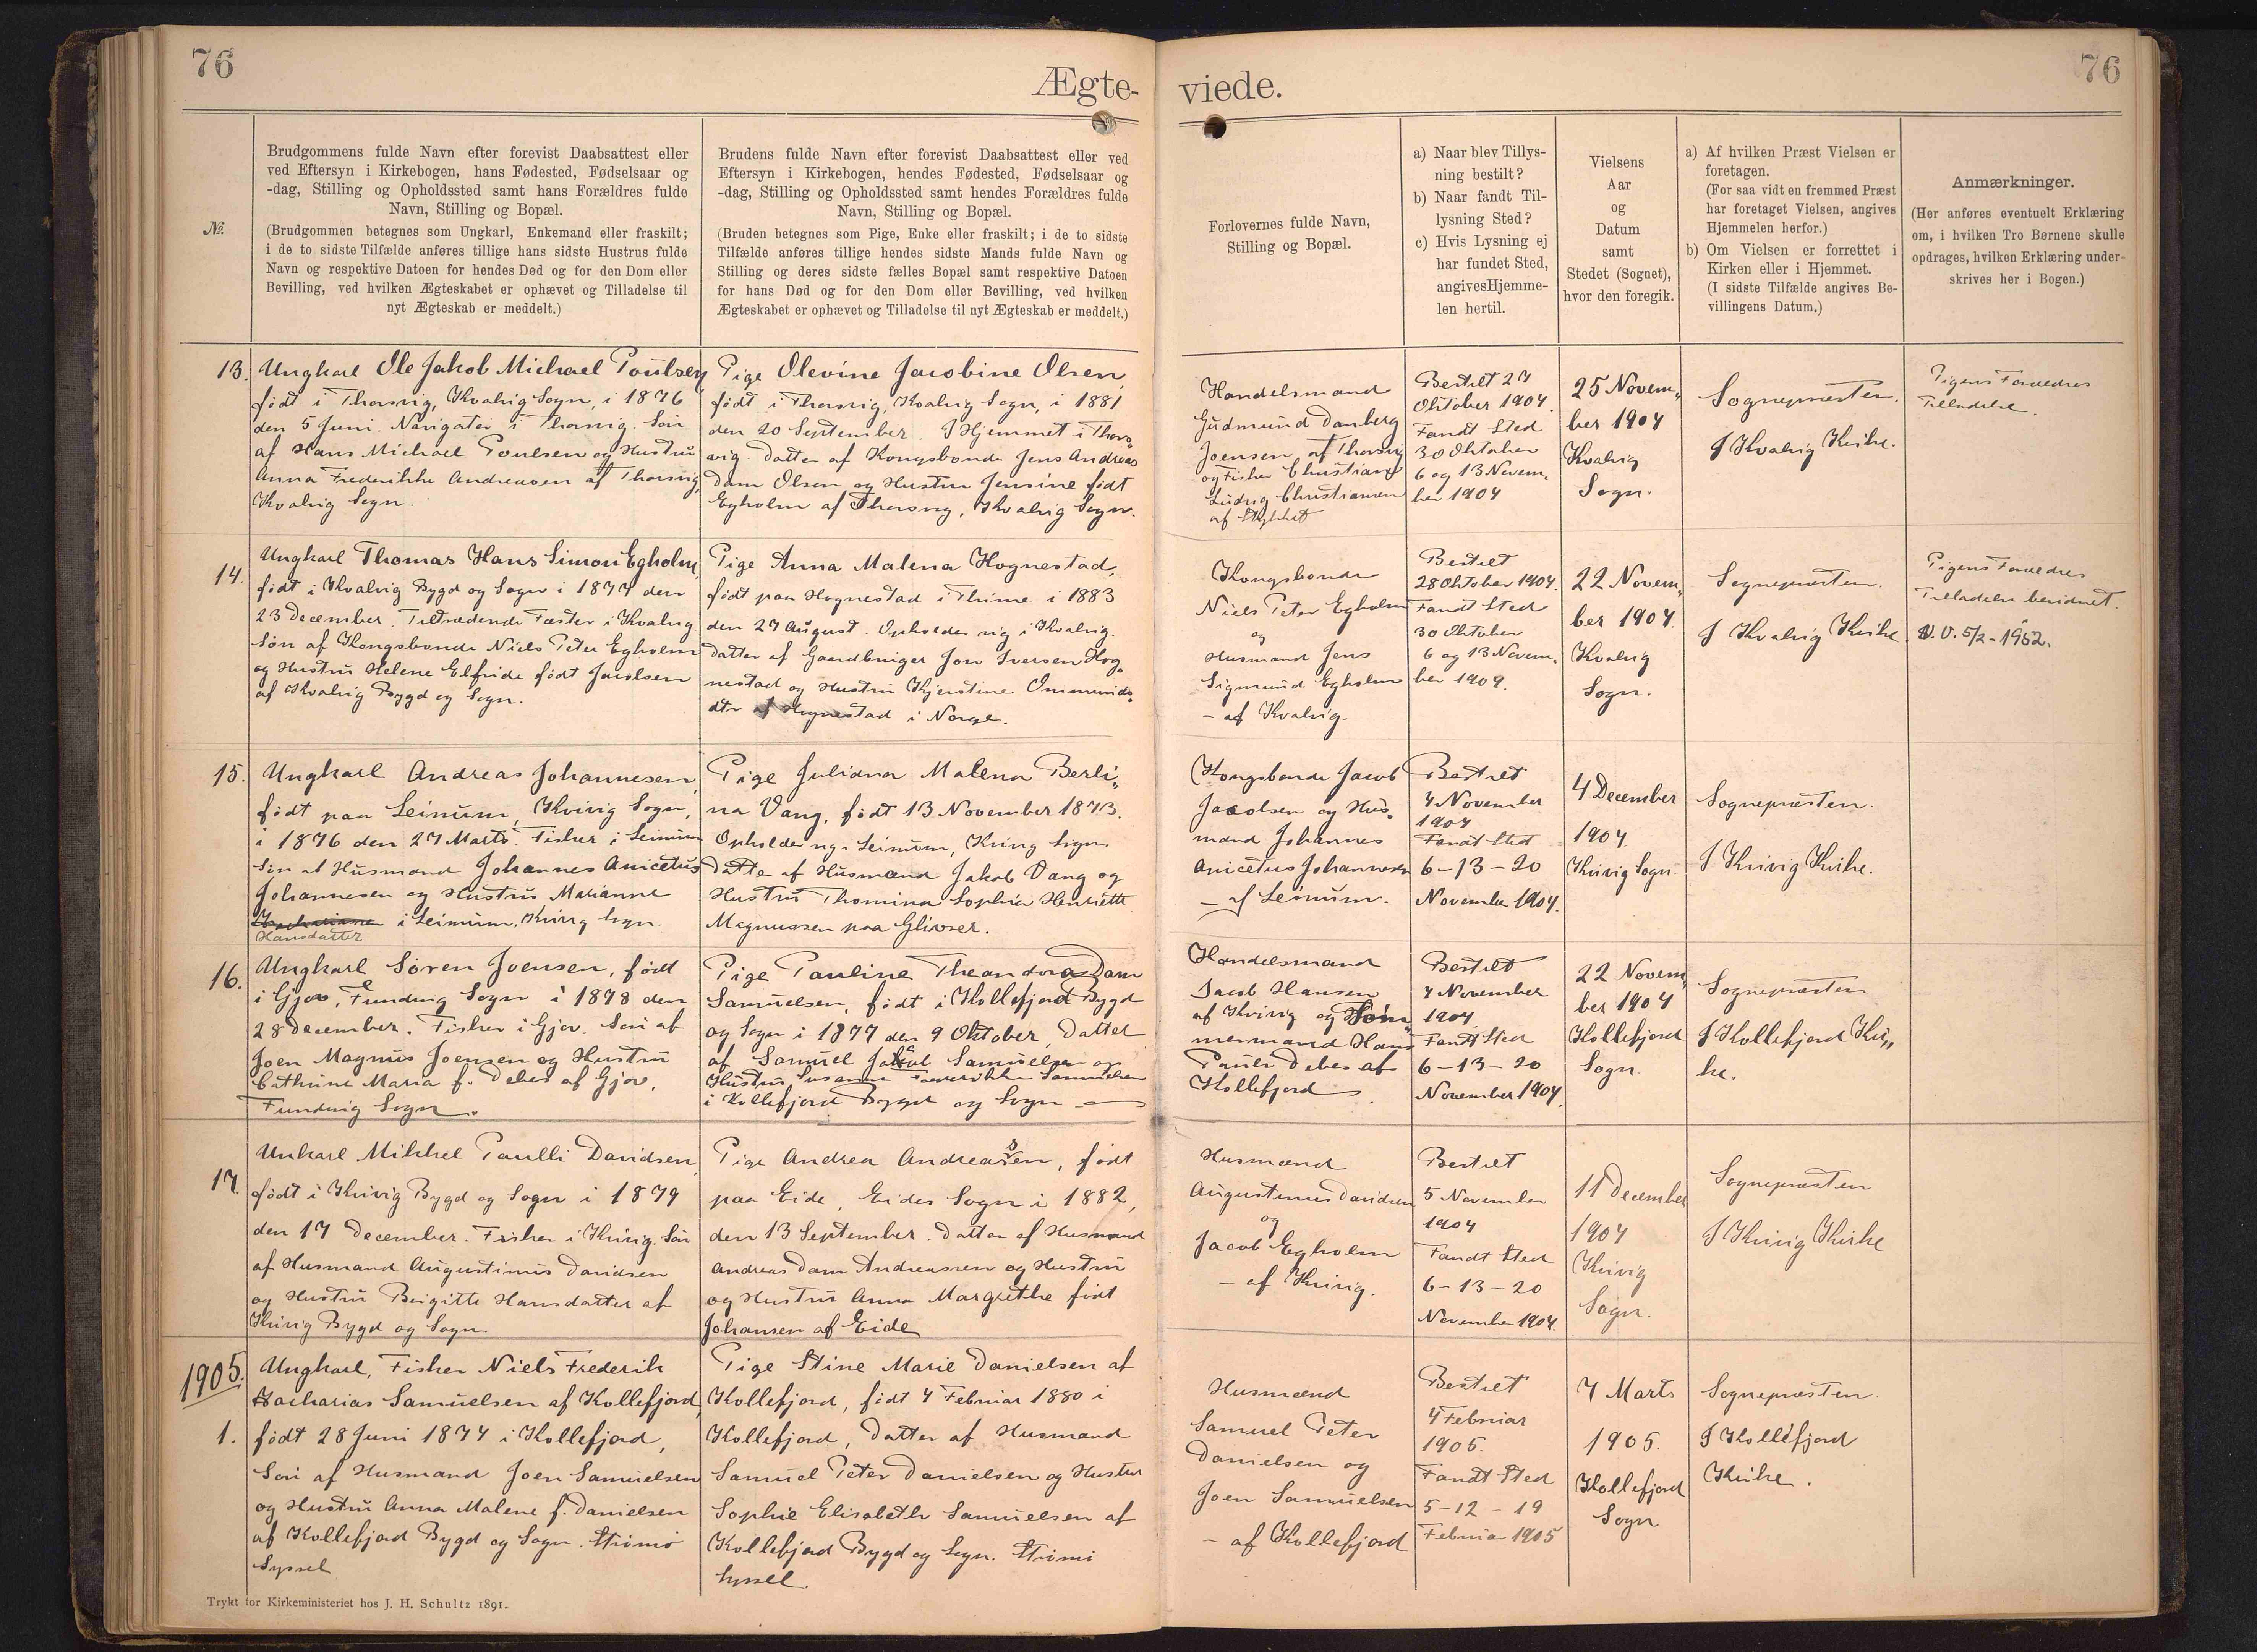 76
Ægte-
viede.
76
№.
Brudgommens fulde Navn efter forevist Daabsattest eller
ved Eftersyn i Kirkebogen, hans Fødested, Fødselsaar og
-dag, Stilling og Opholdssted samt hans Forældres fulde
Navn, Stilling og Bopæl.
(Brudgommen betegnes som Ungkarl, Enkemand eller fraskilt;
i de to sidste Tilfælde anføres tillige hans sidste Hustrus fulde
Navn og respektive Datoen for hendes Død og for den Dom eller
Bevilling, ved hvilken Ægteskabet er ophævet og Tilladelse til
nyt Ægteskab er meddelt.)
Brudens fulde Navn efter forevist Daabsattest eller ved
Eftersyn i Kirkebogen, hendes Fødested, Fødselsaar og
-dag, Stilling og Opholdssted samt hendes Forældres fulde
Navn, Stilling og Bopæl.
(Bruden betegnes som Pige, Enke eller fraskilt; i de to sidste
Tilfælde anføres tillige hendes sidste Mands fulde Navn og
Stilling og deres sidste fælles Bopæl samt respektive Datoen
for hans Død og for den Dom eller Bevilling, ved hvilken
Ægteskabet er ophævet og Tilladelse til nyt Ægteskab er meddelt.)
Forlovernes fulde Navn,
Stilling og Bopæl.
a) Naar blev Tillys-
ning bestilt?
b) Naar fandt Til-
lysning Sted?
c) Hvis Lysning ej
har fundet Sted,
angives Hjemme-
len hertil.
Vielsens
Aar
og
Datum
samt
Stedet (Sognet),
hvor den foregik.
a) Af hvilken Præst Vielsen er
foretagen.
(For saa vidt en fremmed Præst
har foretaget Vielsen, angives
Hjemmelen herfor.)
b) Om Vielsen er forrettet i
Kirken eller i Hjemmet.
(I sidste Tilfælde angives Be-
villingens Datum.)
Anmærkninger.
(Her anføres eventuelt Erklæring
om, i hvilken Tro Børnene skulle
opdrages, hvilken Erklæring under-
skrives her i Bogen.)
13.
Ungkarl Ole Jakob Michael Poulsen
født i Thorsvig, Kvalvig Sogn, i 1876
den 5 Juni. Navigatør i Thorsvig. Søn
af Hans Michael Poulsen og Hustru
Anna Frederikke Andreasen af Thorsvig,
Kvalvig Sogn.
Pige Olevine Jacobine Olsen,
født i Thorsvig, Kvalvig Sogn, i 1881
den 20 September. I Hjemmet i Thors-
vig. Datter af Kongsbonde Jens Andreas
Dam Olsen og Hustru Jensine født
Egholm af Thorsvig, Kvalvig Sogn.
Handelsmand
Gudmund Danberg
Joensen af Thorsvig
og Fisker Christian
Ludvig Christiansen
af Stykket
Bestilt 27
Oktober 1904.
Fandt Sted
30 Oktober
6 og 13 Novem-
ber 1904
25 Novem-
ber 1904
Kvalvig
Sogn.
Sognepræsten.
I Kvalvig Kirke.
Pigens Forældres
Tilladelse.
14.
Ungkarl Thomas Hans Simon Egholm,
født i Kvalvig Bygd og Sogn i 1877 den
23 December. Tiltrædende Fæster i Kvalvig
Søn af Kongsbonde Niels Peter Egholm
og Hustru Helene Elfride født Jacobsen
af Kvalvig Bygd og Sogn.
Pige Anna Malena Hognestad,
født paa Hognestad i Thime i 1883
den 27 August. Opholder sig i Kvalvig.
Datter af Gaardbruger Jon Iversen Hog-
nestad og Hustru Kjerstine Ommunds-
dtr af Hognestad i Norge.
Kongsbonde
Niels Peter Egholm
og
Husmand Jens
Sigmund Egholm
- af Kvalvig.
Bestilt
28 Oktober 1904.
Fandt Sted
30 Oktober
6 og 13 Novem-
ber 1904.
22 Novem-
ber 1904.
Kvalvig
Sogn.
Sognepræsten.
I Kvalvig Kirke
Pigens Forældres
Tilladelse bevidnet.
V. U. 5/2-1952.
15.
Ungkarl Andreas Johannesen,
født paa Leinum, Kvivig Sogn,
i 1876 den 27 Marts. Fisker i Leinum
Søn af Husmand Johannes Anicetus
Johannesen og Hustru Marianne
i Leinum, Kvivig Sogn.
Hansdatter
Pige Juliana Malena Berli-
na Vang, født 13 November 1873.
Opholder sig i Leinum, Kvivig Sogn.
Datter af Husmand Jakob Vang og
Hustru Thomina Sophia Henriette
Magnussen paa Glivser.
Kongsbonde Jacob
Jacobsen og Hus-
mand Johannes
Anicetus Johannesen
- af Leinum.
Bestilt
4 November
1904
Fandt Sted
6-13-20
November 1904.
4 December
1904.
Kvivig Sogn.
Sognepræsten.
I Kvivig Kirke.
16.
Ungkarl Søren Joensen, født
i Gjov, Funding Sogn i 1878 den
28 December. Fisker i Gjov. Søn af
Joen Magnus Joensen og Hustru
Cathrine Maria f. Debes af Gjov,
Funding Sogn.
Pige Pauline Theandora Dam
Samuelsen, født i Kollefjord Bygd
og Sogn i 1877 den 9 Oktober, Datter
af Samuel Jakob Samuelsen og
Hustru Susanna Frederikke Samuelsen
i Kollefjord Bygd og Sogn
Handelsmand
Jacob Hansen
af Kvivig og Tøm-
mermand Hans
Pauli Debes af
Kollefjord
Bestilt
4 November
1904
Fandt Sted
6-13-20
November 1904.
22 Novem-
ber 1904
Kollefjord
Sogn.
Sognepræsten
I Kollefjord Kir-
ke.
17.
Unkarl Mikkel Paulli Davidsen,
født i Kvivig Bygd og Sogn i 1879
den 17 December. Fisker i Kvivig. Søn
af Husmand Augustinus Davidsen
og Hustru Birgitte Hansdatter af
Kvivig Bygd og Sogn
Pige Andrea Andreasen, født
paa Eide, Eides Sogn i 1882,
den 13 September. Datter af Husmand
Andreas Dam Andreassen og Hustru
og Hustru Anna Margrethe født
Johansen af Eide
Husmænd
Augustinus Davidsen
og
Jacob Egholm
- af Kvivig.
Bestilt
5 November
1904
Fandt Sted
6-13-20
November 1904.
11 December
1904
Kvivig
Sogn.
Sognepræsten
I Kvivig Kirke
1905.
1.
Ungkarl, Fisker Niels Frederik
Zacharias Samuelsen af Kollefjord,
født 28 Juni 1874 i Kollefjord,
Søn af Husmand Joen Samuelsen
og Hustru Anna Malene f. Danielsen
af Kollefjord Bygd og Sogn. Strømø
Syssel
Pige Stine Marie Danielsen af
Kollefjord, født 4 Februar 1880 i
Kollefjord, Datter af Husmand
Samuel Peter Danielsen og Hustru
Sophie Elisabeth Samuelsen af
Kollefjord Bygd og Sogn. Strømø
Syssel.
Husmænd
Samuel Peter
Danielsen og
Joen Samuelsen
- af Kollefjord
Bestilt
4 Februar
1905.
Fandt Sted
5-12-19
Februar 1905
7 Marts
1905.
Kollefjord
Sogn
Sognepræsten.
I Kollefjord
Kirke.
Trykt for Kirkeministeriet hos J. H. Schultz 1891.